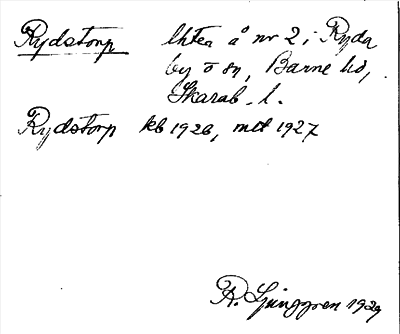 Rydstorp lhten å nr 2 i Ryda
by o sn, Barne hd,
Skarab. l.
Rydstorp kb 1926, mtl 1927
R. Ljunggren 1929